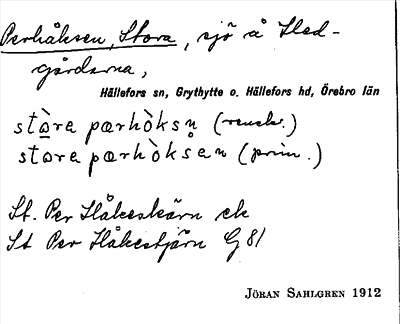 Perhåksen, Stora, sjö å Sled-
gårdarna,
Hällefors sn, Grythytte o. Hällefors hd, Örebro län
stòra pærhòksn̥ (
stora pærhòksen (prim.)
St. Per Håkeskärn ek
St Per Håkestjärn G 81
JÖRAN SAHLGREN 1912